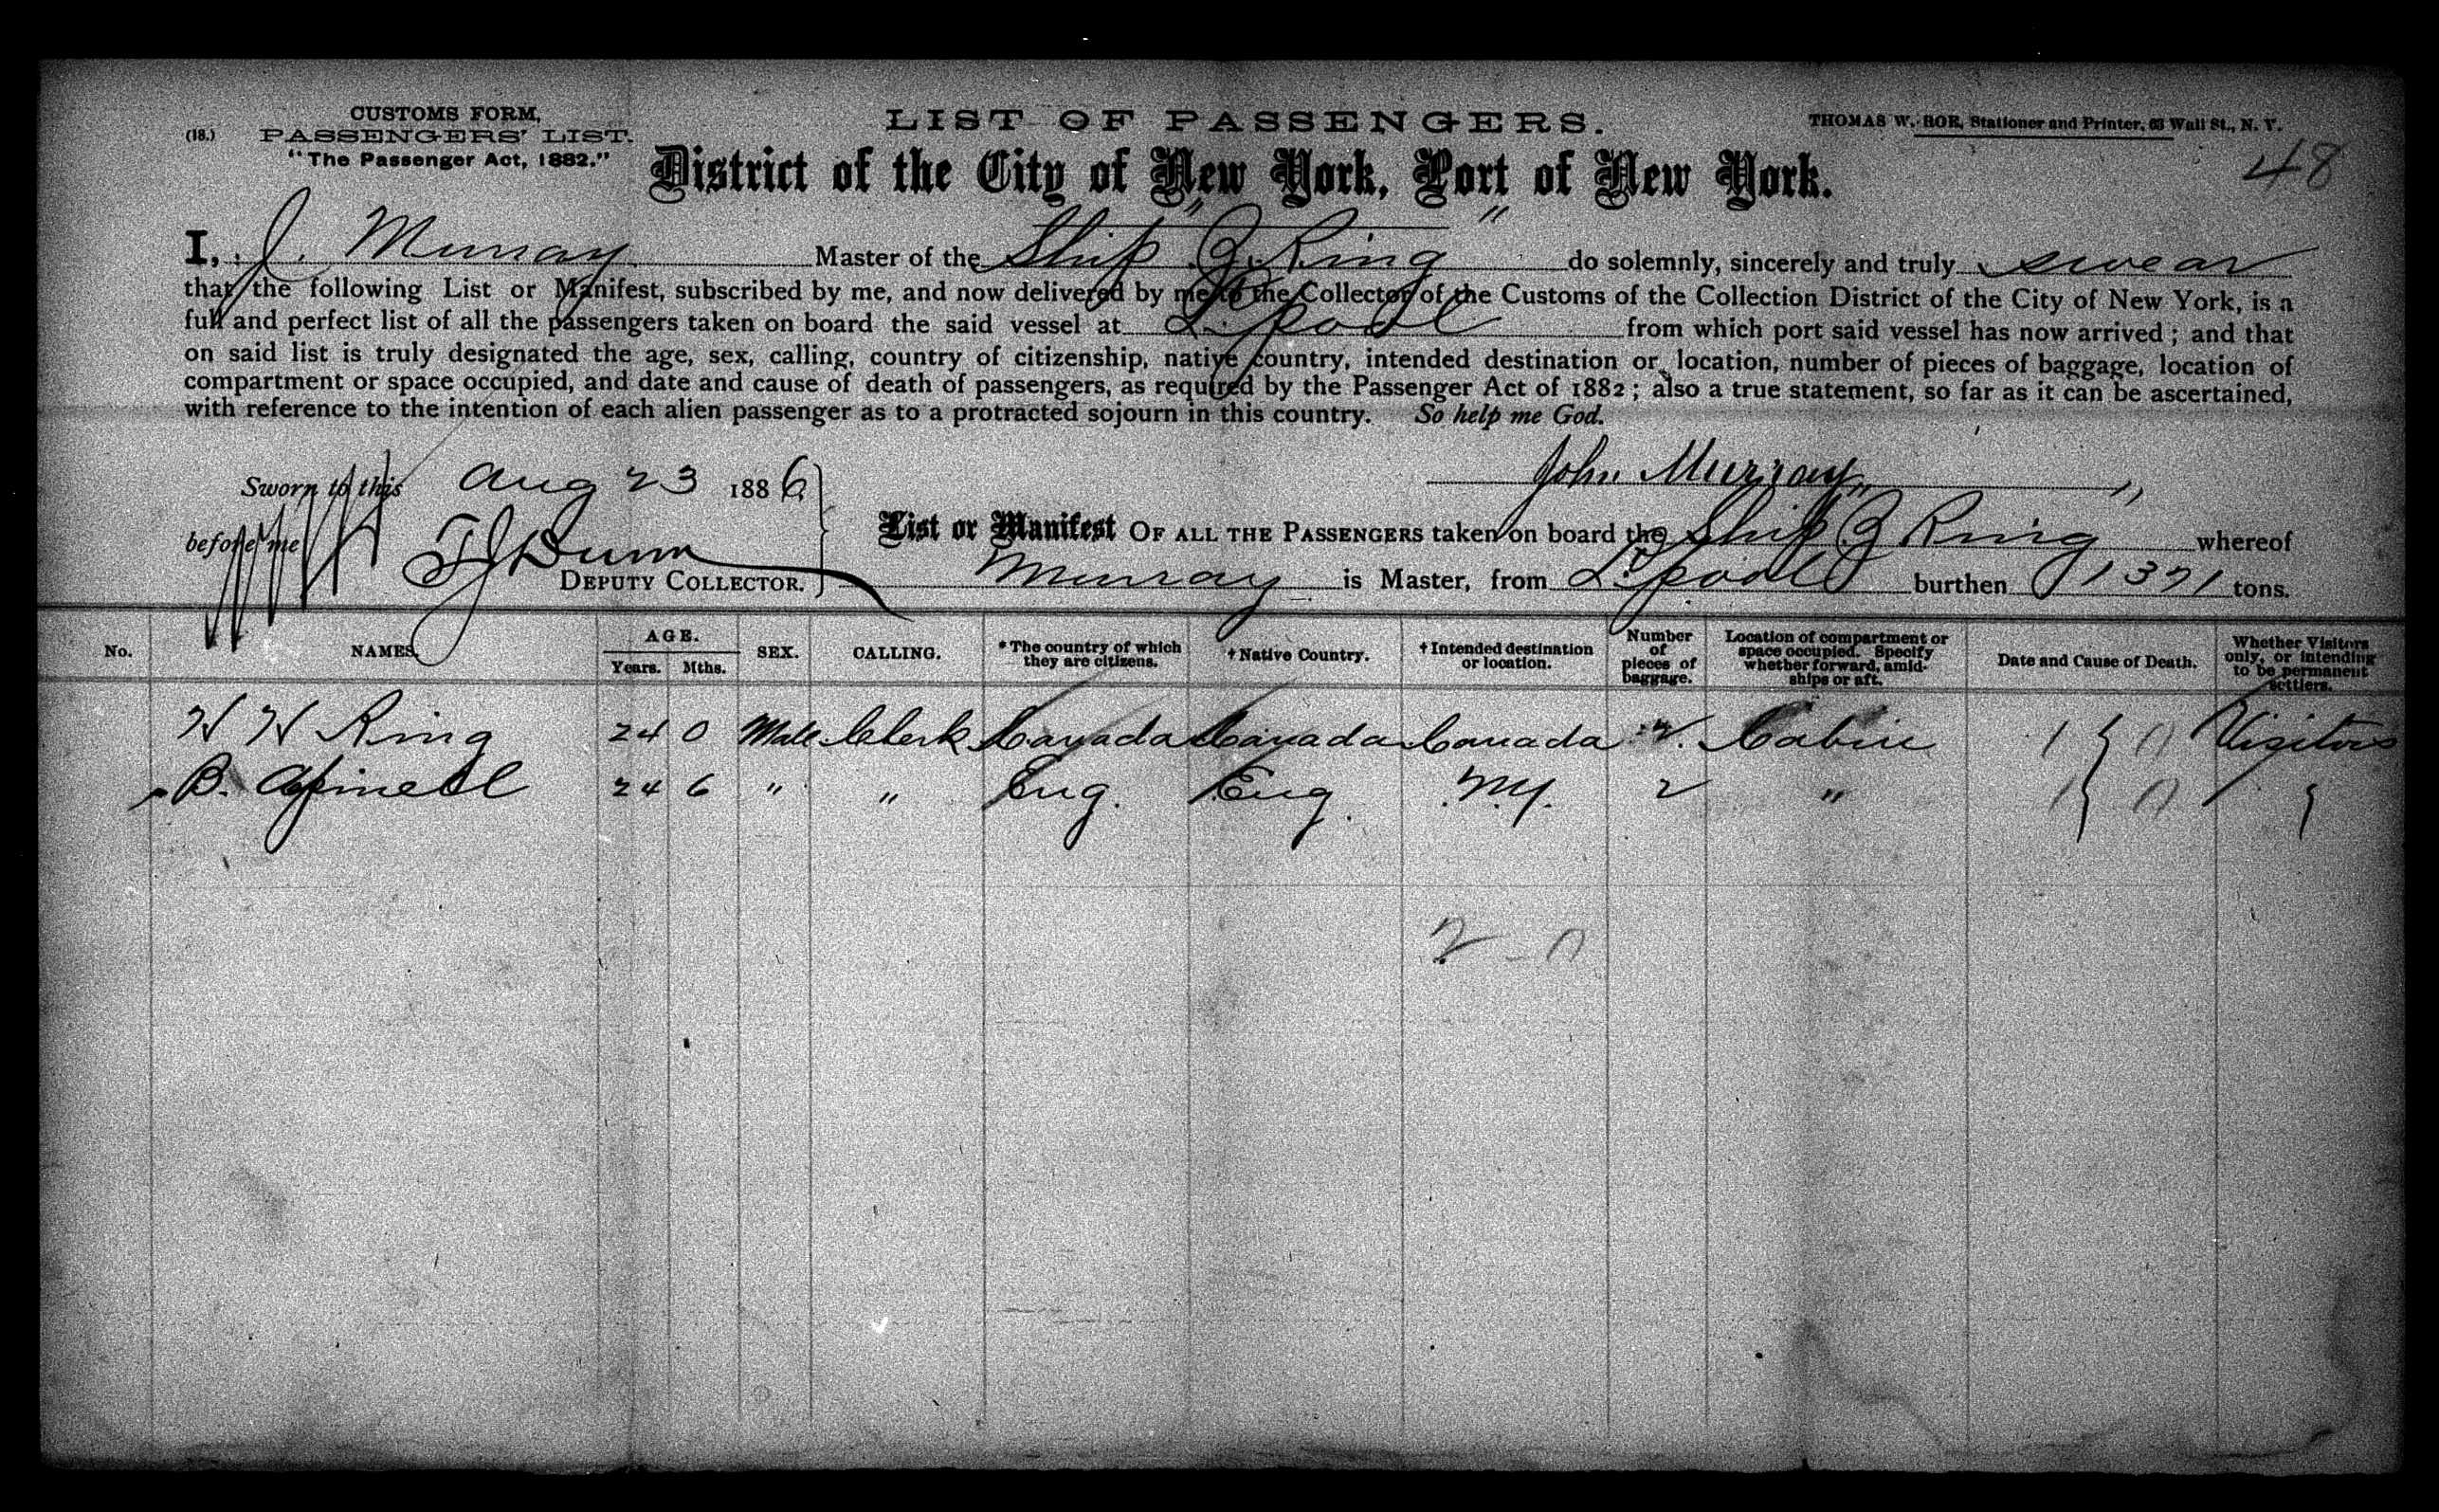 CUSTOMS FORM,
(18.) PASSENGERS' LIST.
"The Passenger Act, 1882."
LIST OF PASSENGERS.
THOMAS W. ROE, Stationer and Printer, 63 Wall St., N. Y.
48
District of the City of New York, Port of New York.
I, J. Murray Master of the Ship "Z. Ring" do solemnly, sincerely and truly swear
that the following List or Manifest, subscribed by me, and now delivered by me to the Collector of the Customs of the Collection District of the City of New York, is a
full and perfect list of all the passengers taken on board the said vessel at L'pool from which port said vessel has now arrived; and that
on said list is truly designated the age, sex, calling, country of citizenship, native country, intended destination or location, number of pieces of baggage, location of
compartment or space occupied, and date and cause of death of passengers, as required by the Passenger Act of 1882; also a true statement, so far as it can be ascertained,
with reference to the intention of each alien passenger as to a protracted sojourn in this country. So help me God.
Sworn to this Aug 23 1886
John Murray
before me
Dunn
DEPUTY COLLECTOR.
List or Manifest OF ALL THE PASSENGERS taken on board the Ship "Z Ring" whereof
Murray is Master, from L'pool burthen 1371 tons.
No. NAMES. AGE. Years. Mths. SEX. CALLING. *The country of which they are citizens. †Native Country. †Intended destination or location. Number of pieces of baggage. Location of compartment or space occupied. Specify whether forward, amidships or aft. Date and Cause of Death. Whether Visitors only, or intending to be permanent settlers.
H H Ring 24 0 Male Clerk Canada Canada Canada 2 Cabin Visitors
B. 24 6 " " Eng. Eng. N.Y. 2 "
2 - 0